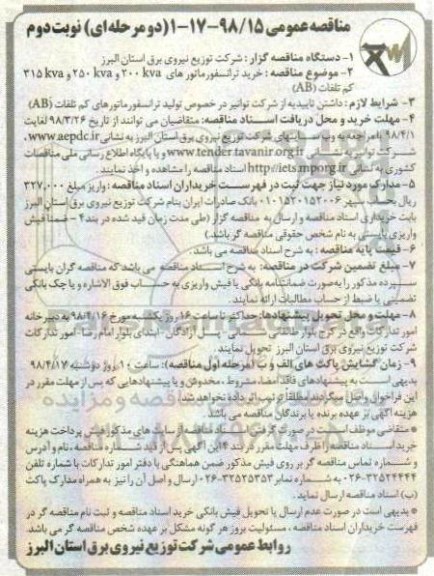 مناقصه عمومی ۹۸/۱۵-۱۷-۱ (دو مرحله ای) نوبت دوم
۱- دستگاه مناقصه گزار : شرکت توزیع نیروی برق استان البرز
۲- موضوع مناقصه : خرید ترانسفورماتور های ۲۰۰ kva و ۲۵۰ kva و ۳۱۵ kva
کم تلفات (AB)
۳- شرایط لازم : داشتن تاییدیه از شرکت توانیر در خصوص تولید ترانسفورماتورهای کم تلفات (AB)
۴- مهلت خرید و محل دریافت اسناد مناقصه: متقاضیان می توانند از تاریخ ۹۸/۳/۲۶ لغایت
۹۸/۴/۱ با مراجعه به وب سایتهای شرکت توزیع نیروی برق استان البرز به نشانی www.aepdc.ir،
شرکت توانیر به نشانی www.tender.tavanir.org.ir و یا پایگاه اطلاع رسانی ملی مناقصات
کشوری به نشانی http://iets.mporg.ir اسناد مناقصه را مشاهده و اخذ نمایند.
۵- مدارک مورد نیاز جهت ثبت در فهرست خریداران اسناد مناقصه : واریز مبلغ ۳۲۷,۰۰۰
ریال بحساب سپهر ۰۱۰۱۵۲۰۱۵۲۰۰۶ بانک صادرات ایران بنام شرکت توزیع نیروی برق استان البرز
بابت خریداری اسناد مناقصه و ارسال به مناقصه گزار (طی مدت زمان قید شده در بند ۴ - ضمنا فیش
واریزی بایستی به نام شخص حقوقی مناقصه گر باشد.)
۶- قیمت پایه مناقصه : به شرح اسناد مناقصه می باشد.
۷- مبلغ تضمین شرکت در مناقصه: به شرح اسناد مناقصه می باشد که مناقصه گران بایستی
سپرده مذکور را به صورت ضمانتنامه بانکی یا فیش واریزی به حساب فوق الاشاره و یا چک بانکی
تضمینی یا ضبط از حساب مطالبات ارائه نمایند.
۸- مهلت و محل تحویل پیشنهادها: حداکثر تا ساعت ۱۶ روز یکشنبه مورخ ۹۸/۴/۱۶ به دبیرخانه
امور تدارکات واقع در کرج - بلوار طالقانی شمالی - پل آزادگان - ابتدای بلوار امام رضا - امور تدارکات
شرکت توزیع نیروی برق استان البرز تحویل نمایند.
۹- زمان گشایش پاکت های الف و ب (مرحله اول مناقصه): ساعت ۱۰ روز دوشنبه ۹۸/۴/۱۷
بدیهی است به پیشنهادهای فاقد امضا، مشروط، مخدوش و یا پیشنهادهایی که پس از مهلت مقرر در
این فراخوان واصل میگردند مطلقا ترتیب اثر داده نخواهد شد.
هزینه آگهی نیز عهده برنده یا برندگان مناقصه می باشد
* متقاضی موظف است در صورت گرفتن اسناد مناقصه از سایت های مذکور فیش پرداخت هزینه
خرید اسناد مناقصه را ظرف مهلت مقرر در بند ۴ این آگهی پس از قید شماره مناقصه، نام و آدرس
و شماره تماس مناقصه گر بر روی فیش مذکور ضمن هماهنگی با دفتر امور تدارکات با شماره تلفن
۰۲۶-۳۲۵۲۴۴۴۴ به شماره نمابر ۰۲۶-۳۲۵۲۵۳۵۳ ارسال و اصل آن را نیز به همراه مدارک پاکت
(ب) اسناد مناقصه ارسال نماید.
* بدیهی است در صورت عدم ارسال یا تحویل فیش بانکی خرید اسناد مناقصه و ثبت نام مناقصه گر در
فهرست خریداران اسناد مناقصه ، مسئولیت بروز هر گونه مشکل بر عهده شخص مناقصه گر می باشد.
روابط عمومی شرکت توزیع نیروی برق استان البرز